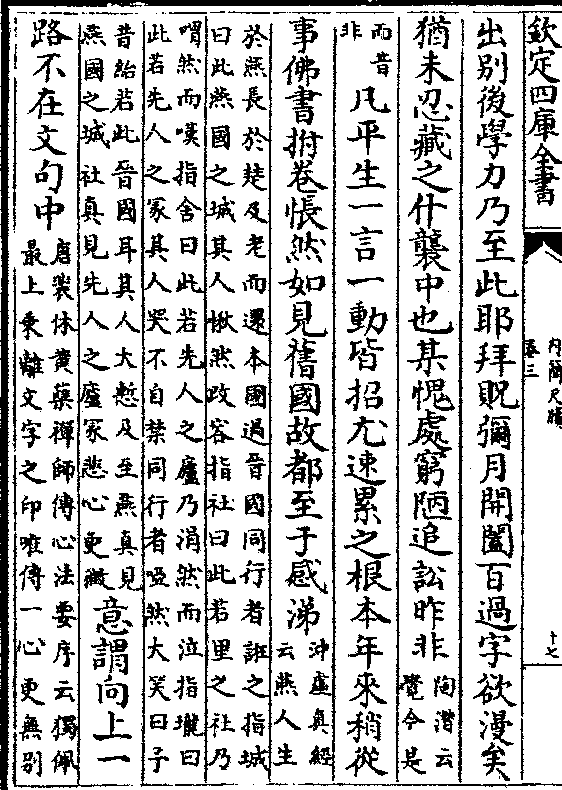 欽定四庫全書
內簡尺牘
卷三
十七
出別後學力乃至此耶拜貺彌月開闔百過字欲漫矣
猶未忍藏之什襲中也某愧處窮陋追訟昨非
陶潛云
覺今是
而昔
非
凡平生一言一動皆招尤速累之根本年來稍從
事佛書拊卷悵然如見舊國故都至于感涕
沖虛真經
云燕人生
於燕長於楚及老而還本國過晉國同行者誑之指城
曰此燕國之城其人愀然改容指社曰此若里之社乃
喟然而嘆指舍曰此若先人之廬乃涓然而泣指壠曰
此若先人之冢其人哭不自禁同行者啞然大笑曰予
昔紿若此晉國耳其人大慙及至燕真見
燕國之城社真見先人之廬冢悲心更微
意謂向上一
路不在文句中
唐裴休黃蘗禪師傳心法要序云獨佩
最上乘離文字之印唯傳一心更無別